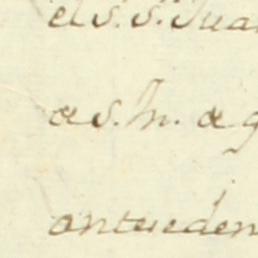 el S. S.n Jua
de S. Jn. de g
anteceden